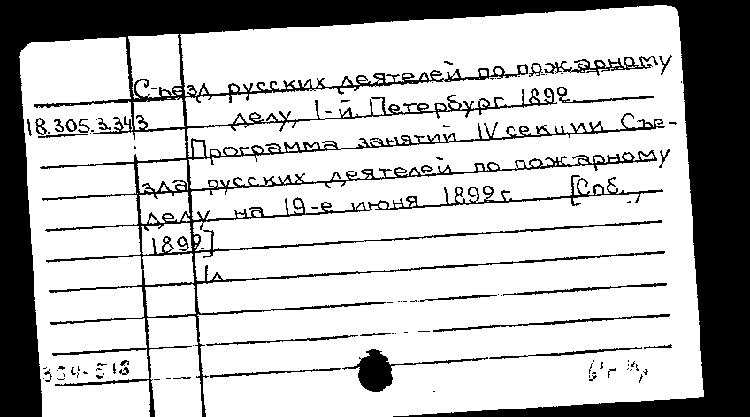 Съезд русских деятелей по пожарному
18.305.3.343 делу, 1-й. Петербург. 1892.
Программа занятий IV секции Съе-
зда русских деятелей по пожарному
делу на 19-е июня 1892 г. [Спб.,
1892]
1л
334-518